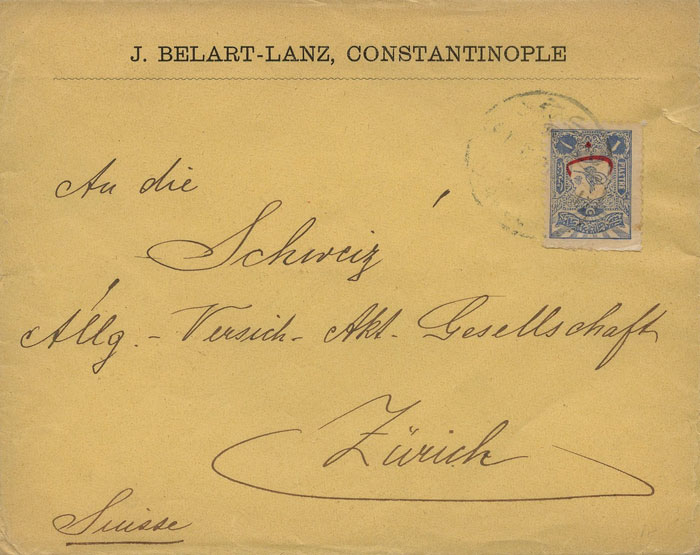 J. BELART-LANZ, CONSTANTINOPLE
1 PIASTRE
An die
Schweiz
Allg. - Versich- Akt- Gesellschaft
Zürich
Suisse